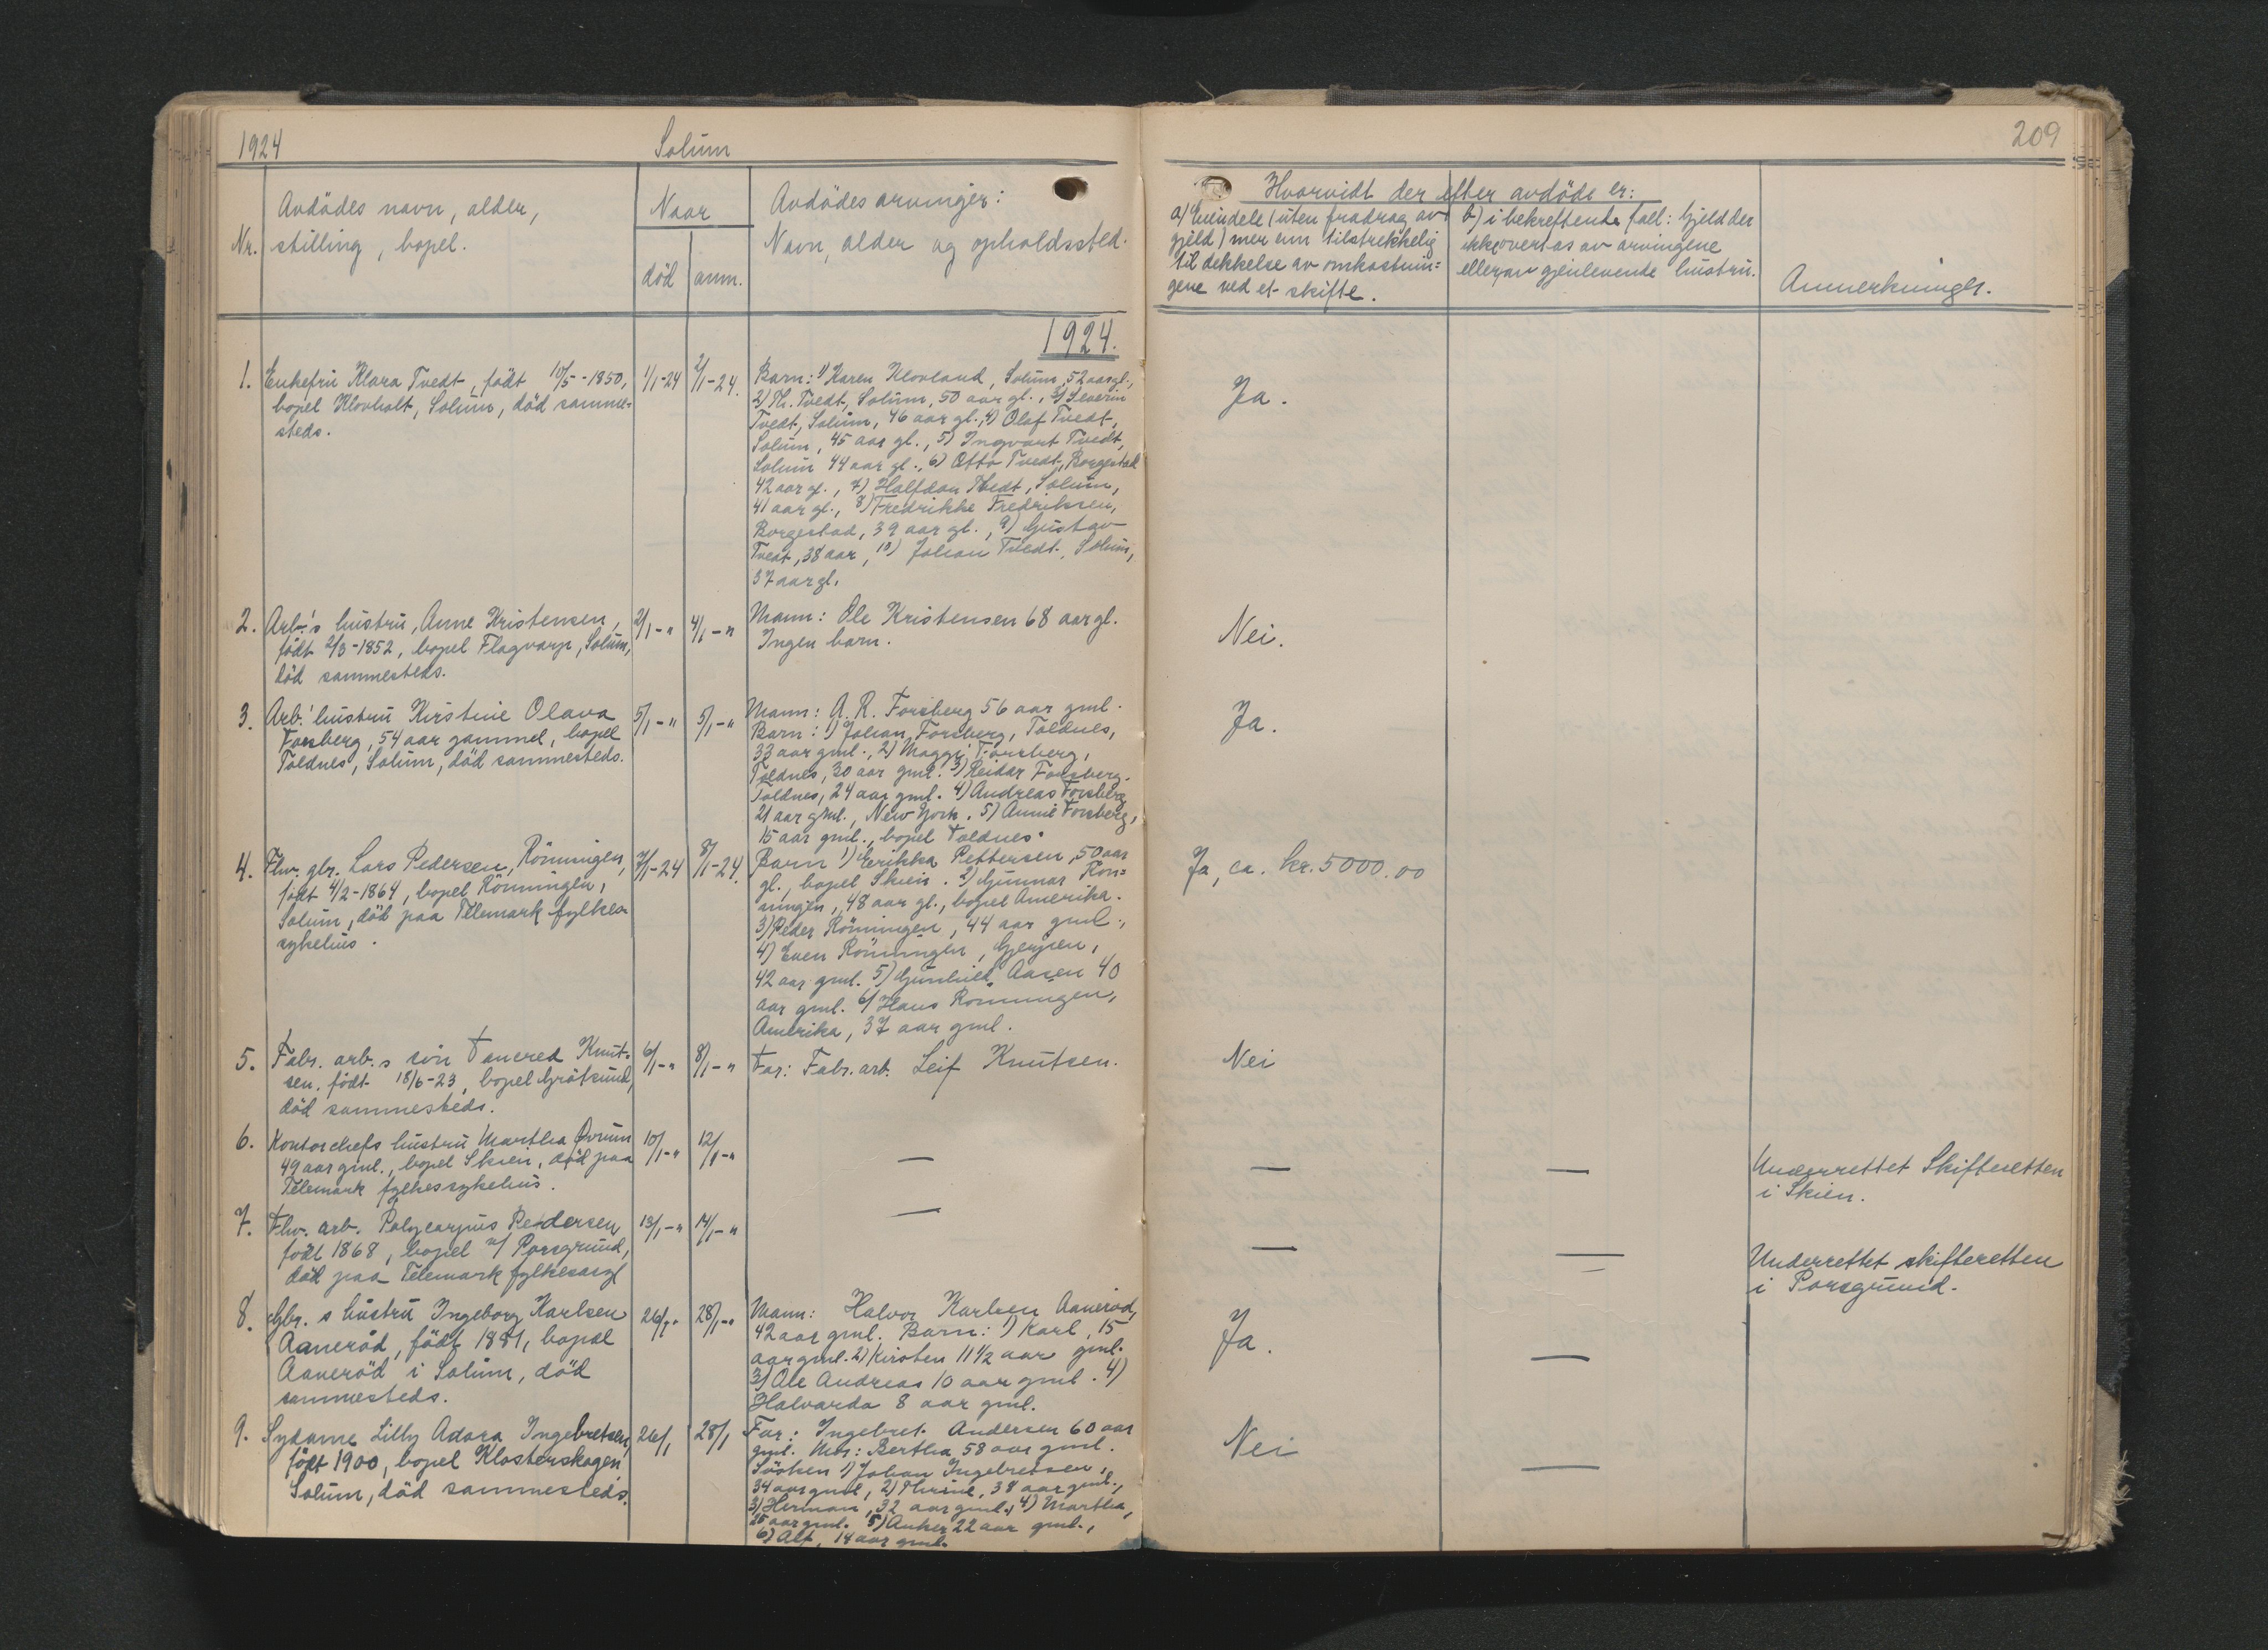 1924
Solum
Nr.
Avdödes navn, alder,
stilling, bopel.
Naar
död
anm.
Avdödes arvinger:
Navn, alder og opholdssted.
1924.
1. Enkefru Klara Tvedt, född 10/5-1850, 1/1-24 2/1-24.
bopel Klovholt, Solum, död samme=
steds.
Barn: 1) Karen Klovland, Solum, 52 aar gl.,
2) Th. Tvedt, Solum, 50 aar gl., 3) Severin
Tvedt, Solum, 46 aar gl., 4) Olaf Tvedt,
Solum, 45 aar gl., 5) Ingvart Tvedt,
Solum 44 aar gl., 6) Otto Tvedt, Borgestad
42 aar gl., 7) Halfdan Tvedt, Solum,
41 aar gl., 8) Fredrikke Fredriksen,
Borgestad, 39 aar gl., 9) Gustav
Tvedt, 38 aar, 10) Johan Tvedt, Solum,
37 aar gl.
2. Arb.'s hustru, Anne Kristensen, 2/1-" 4/1-"
födt 2/3-1852, bopel Flagvarp, Solum,
död sammesteds.
Mann: Ole Kristensen 68 aar gl.
Ingen barn.
3. Arb.' hustru Kirstine Olava 5/1-" 5/1-"
Forsberg, 54 aar gammel, bopel
Toldnes, Solum, död sammesteds.
Mann: A. R. Forsberg 56 aar gml.
Barn: 1) Johan Forsberg, Toldnes,
33 aar gml., 2) Maggi Forsberg,
Toldnes, 30 aar gml. 3) Reidar Forsberg.
Toldnes, 24 aar gml. 4) Andreas Forsberg
21 aar gml., New York. 5) Annie Forsberg,
15 aar gml., bopel Toldnes.
4. Fhv. gbr. Lars Pedersen, Rönningen, 7/1-24 8/1-24.
födt 4/2-1864, bopel Rönningen,
Solum, död paa Telemark fylkes=
sykehus.
Barn 1) Erikka Pettersen, 50 aar
gl., bopel Skien. 2) Gunnar Rön=
ningen, 48 aar gl., bopel Amerika.
3) Peder Rönningen, 44 aar gml.,
4) Even Rönningen, Gjerpen,
42 aar gml. 5) Gunhild Aasen 40
aar gml. 6) Hans Rönningen,
Amerika, 37 aar gml.
5. Fabr. arb.s sön Tancred Knut= 6/1-" 8/1-"
sen, födt 18/6-23, bopel Grötsund,
död sammesteds.
Far: Fabr. arb. Leif Knutsen.
6. Kontorchefs hustru Martha Örum 10/1-" 12/1-"
49 aar gml., bopel Skien, död paa
Telemark fylkessykehus.
—
7. Fhv. arb. Polycarpus Pedersen 13/1-" 14/1-"
födt 1868, bopel v/ Porsgrund,
död paa Telemark fylkessyl
—
8. Gbr. s hustru Ingeborg Karlsen 26/1" 28/1-"
Aaneröd, födt 1881, bopel
Aaneröd i Solum, död
sammesteds.
Mann: Halvor Karlsen Aaneröd,
42 aar gml. Barn: 1) Karl, 15
aar gml. 2) Kirsten 11 1/2 aar gml.
3) Ole Andreas 10 aar gml. 4)
Halvarda 8 aar gml.
9. Sydame Lilly Adora Ingebretsen, 26/1 28/1
födt 1900, bopel Klosterskogen
Solum, död sammesteds.
Far: Ingebret Andersen 60 aar
gml. Mor: Bertha 58 aar gml.
Sösken 1) Johan Ingebretsen,
34 aar gml, 2) Thrine, 38 aar gml.,
3) Herman, 32 aar gml., 4) Martha,
25 aar gml. 5) Anker 22 aar gml.,
6) Alf, 14 aar gml.
209
Hvorvidt der efter avdöde er:
a) Eiendele (uten fradrag av
gjeld) mer enn tilstrekkelig
til dekkelse av omkostnin=
gene ved et skifte.
b) i bekreftende fall: Gjeld der
ikke overtas av arvingene
eller av gjenlevende hustru.
Anmerkninger.
Ja.
Nei.
Ja.
Ja, ca. kr. 5000.00
Nei
— — Underrettet Skifteretten
i Skien.
— — Underrettet skifteretten
i Porsgrund.
Ja. —
Nei —